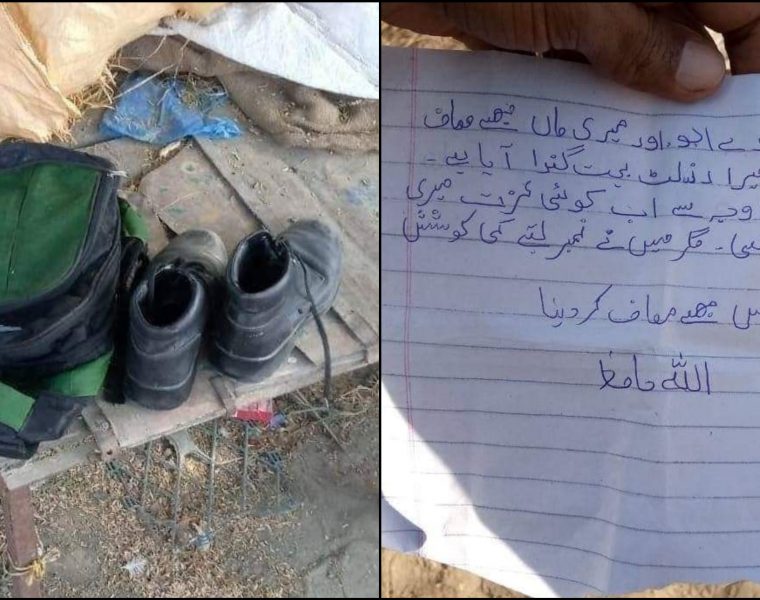 ے ابو اور میری ماں مجھے معاف
میرا رزلٹ بہت گندا آیا ہے۔
وجہ سے اب کوئی عزت میری
مگر میں نے نمبر لینے کی کوشش
مجھے معاف کر دینا
اللہ حافظ